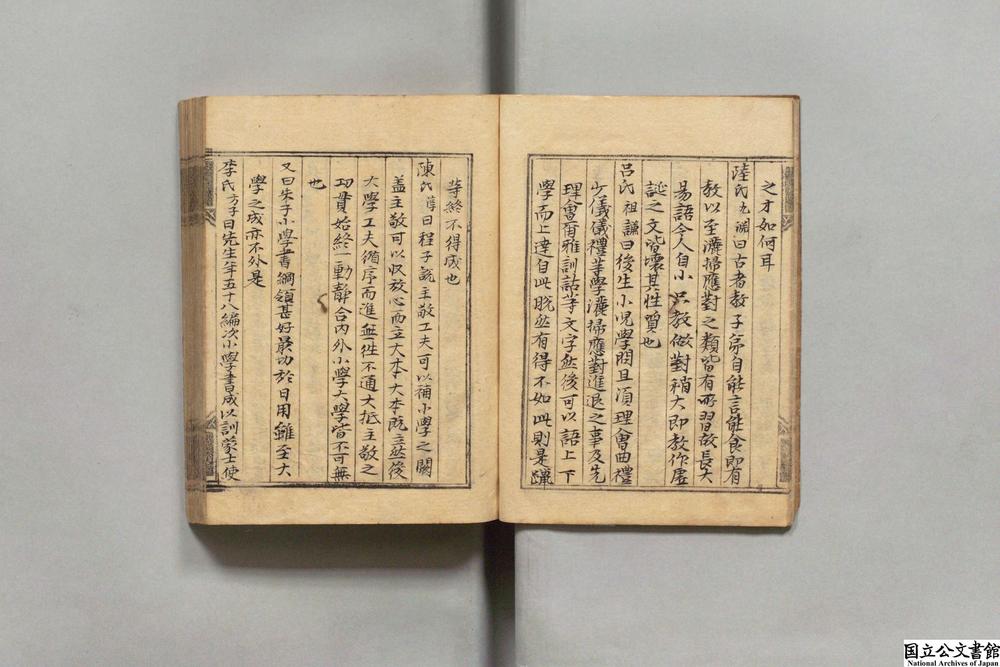 之才如何耳
陸氏九淵曰古者教子弟自能言能食即有
教以至灑掃應對之類皆有所習故長大
易語今人自小只教做對稍大即教作虛
誕之文皆壞其性質也
呂氏祖謙曰後生小兒學問且須理會曲禮
少儀儀禮等學灑掃應對進退之事及先
理會爾雅訓詁等文字然後可以語上下
學而上達自此脫然有得不如此則是躐
等終不得成也
陳氏淳曰程子說主敬工夫可以補小學之闕
盖主敬可以収放心而立大本大本既立然後
大學工夫循序而進無徃不通大抵主敬之
功貫始終一動靜合內外小學大學皆不可無
也
又曰朱子小學書綱領甚好最切於日用雖至大
學之成亦不外是
李氏方子曰先生年五十八編次小學書成以訓蒙士使
国立公文書館
National Archives of Japan